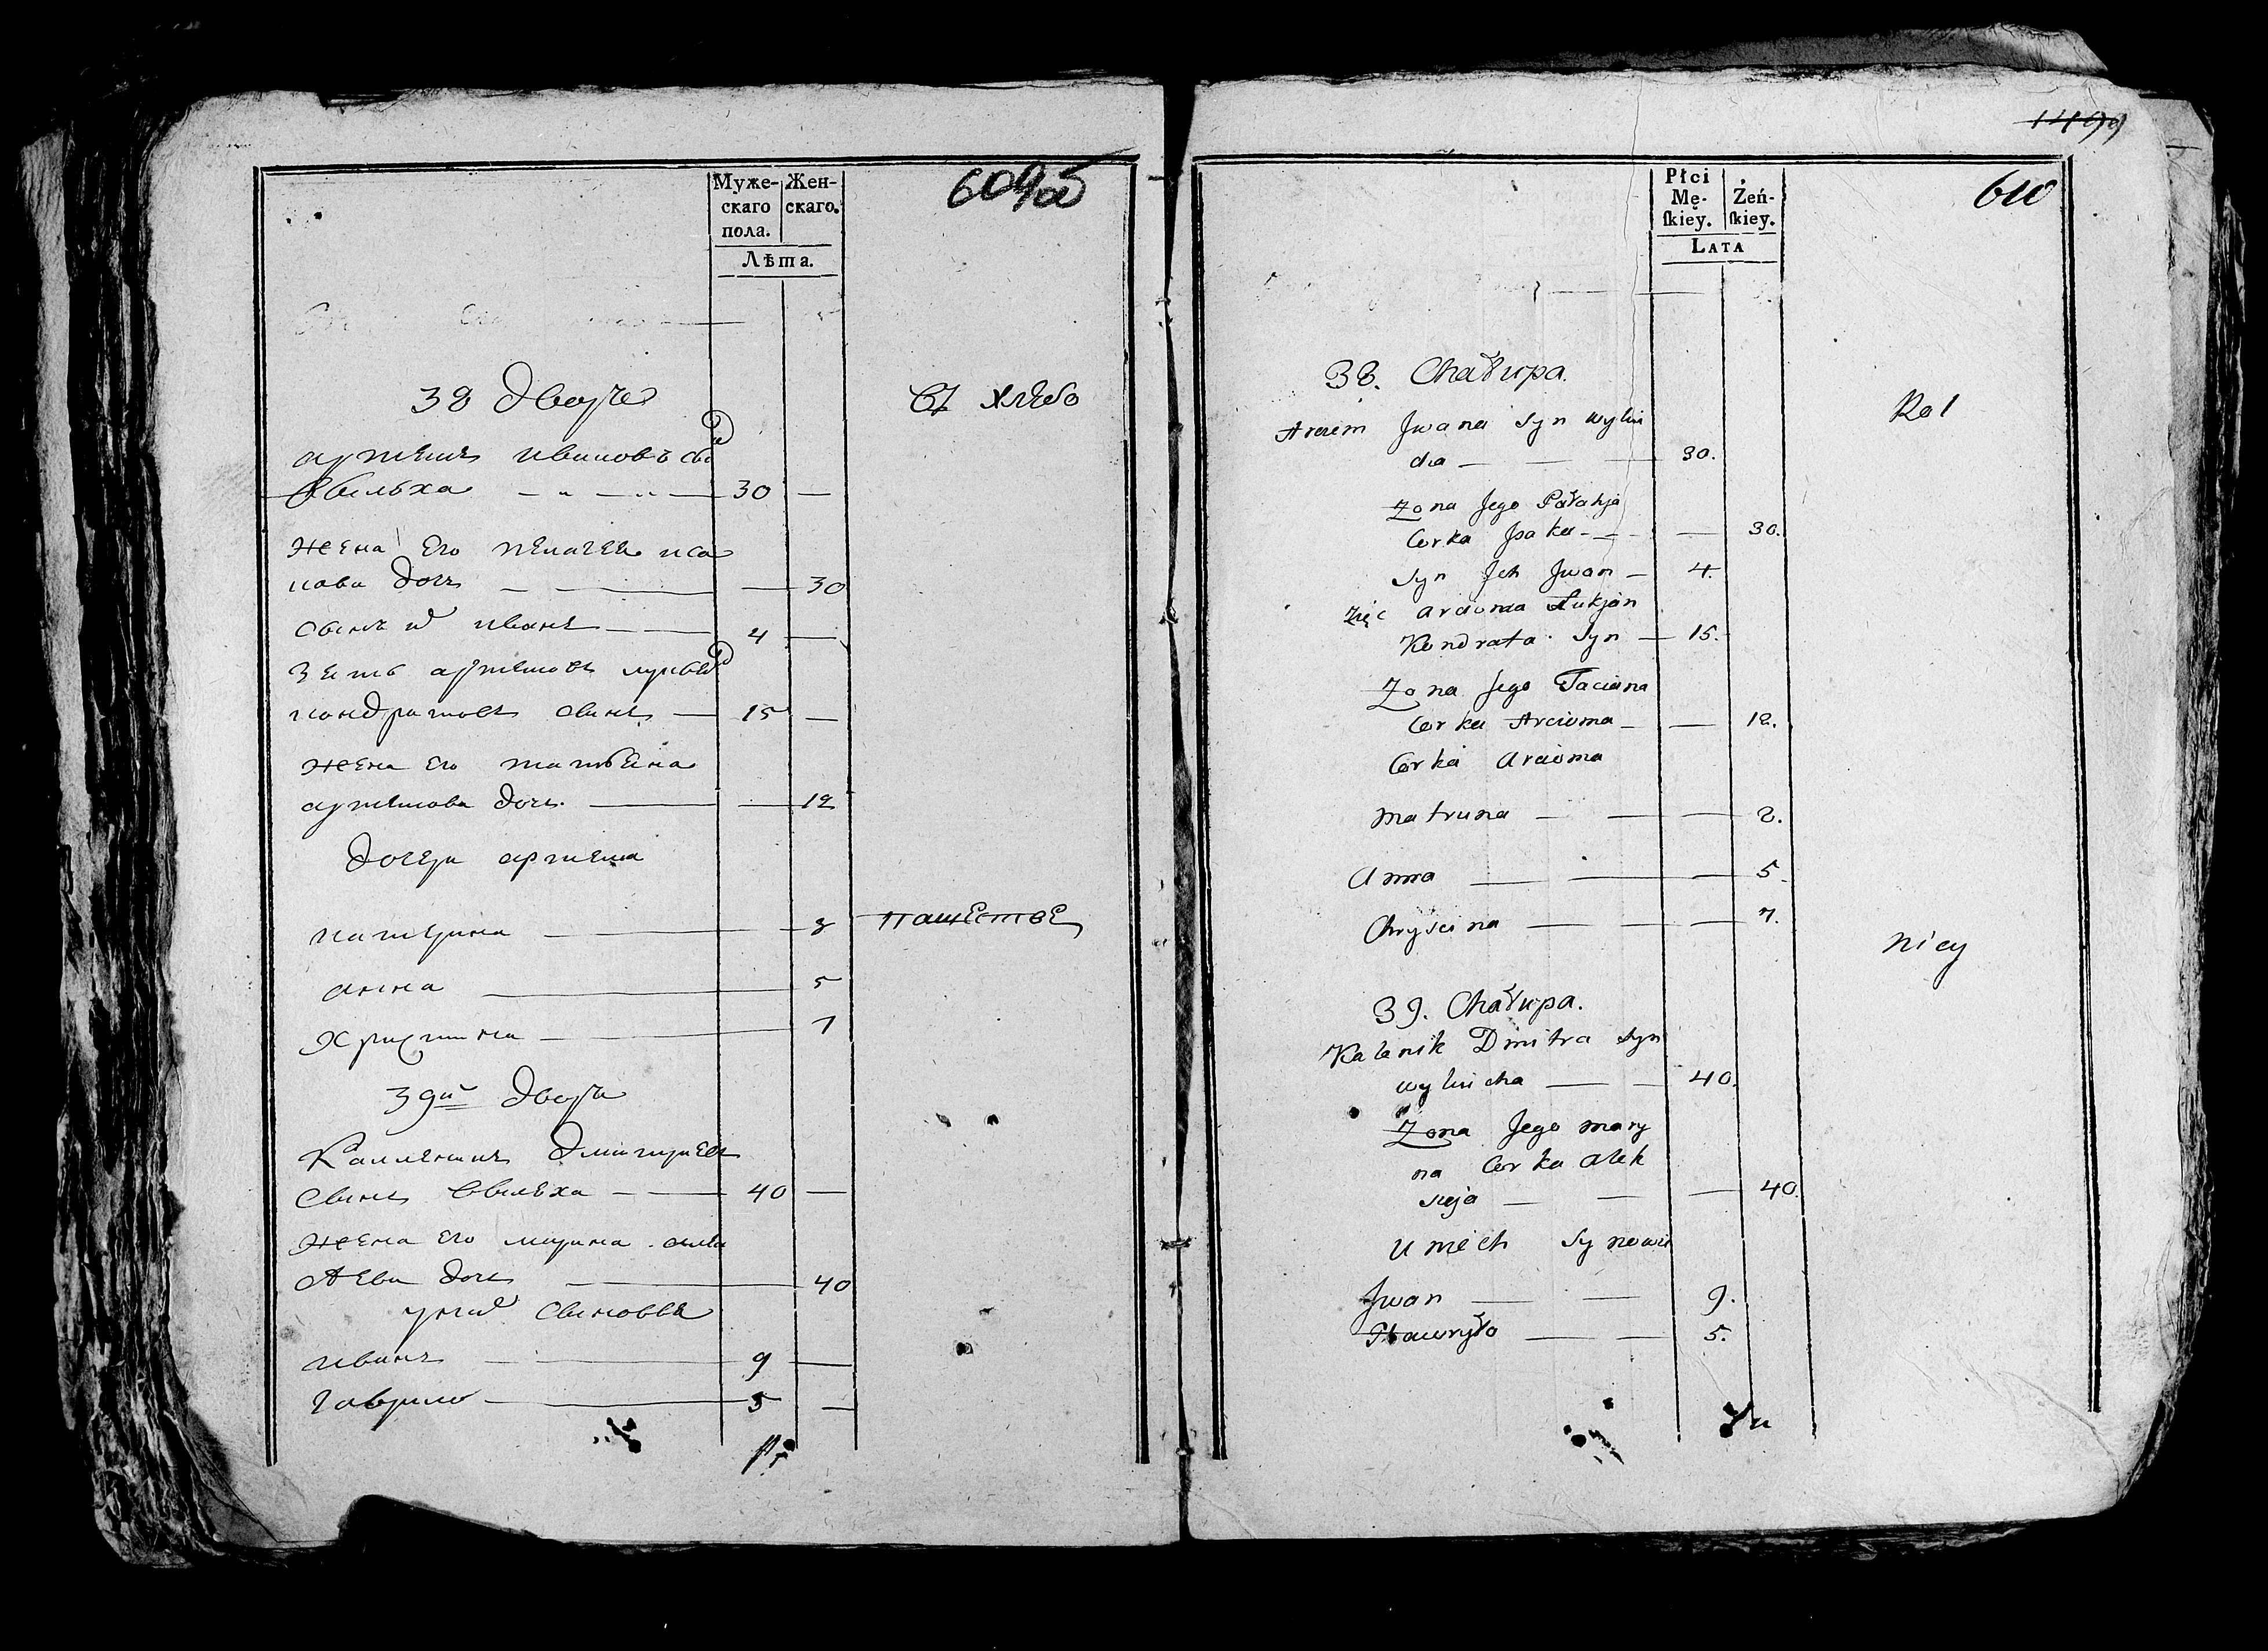 609об
Муже-
скаго
пола.
Жен-
скаго.
Лѣта.
38 дворъ
хлебо
артемъ ивановъ
30 —
жена его пелагея иса
кова дочь — 30
сынъ иванъ — 4 —
зять артемовъ лукья
кондратовъ сынъ — 15 —
жена его татьяна
артемова дочь — 12
дочери артема
катерина — 3
пашество
анна — 5
христина — 7
39й дворъ
Каленикъ дмитриевъ
сынъ — 40 —
жена его марина але
ксѣева дочь — 40
у них сыновья
иванъ — 9 —
гаврило — 5 —
1499
610
Płci
Mę-
ſkiey.
Żeń-
ſkiey.
Lata
38. Chałupa.
Rol
Arciem Jwana Syn wylin
cha — 30.
Zona Jego Pałahja
Corka Jsaka — 30.
Syn Jch Jwan — 4.
Zięc Arcioma Łukjan
Kondrata Syn — 15.
Zona Jego Taciana
Corka Arcioma — 12.
Corka Arcioma
Matruna — 2.
Anna — 5.
Chryscina — 7.
nicy
39. Chałupa.
Kalenik Dmitra Syn
wylicha — 40.
Zona Jego Mary
na Corka Alek
sieja — 40.
U nich Synowie
Jwan — 9.
Hawryło — 5.